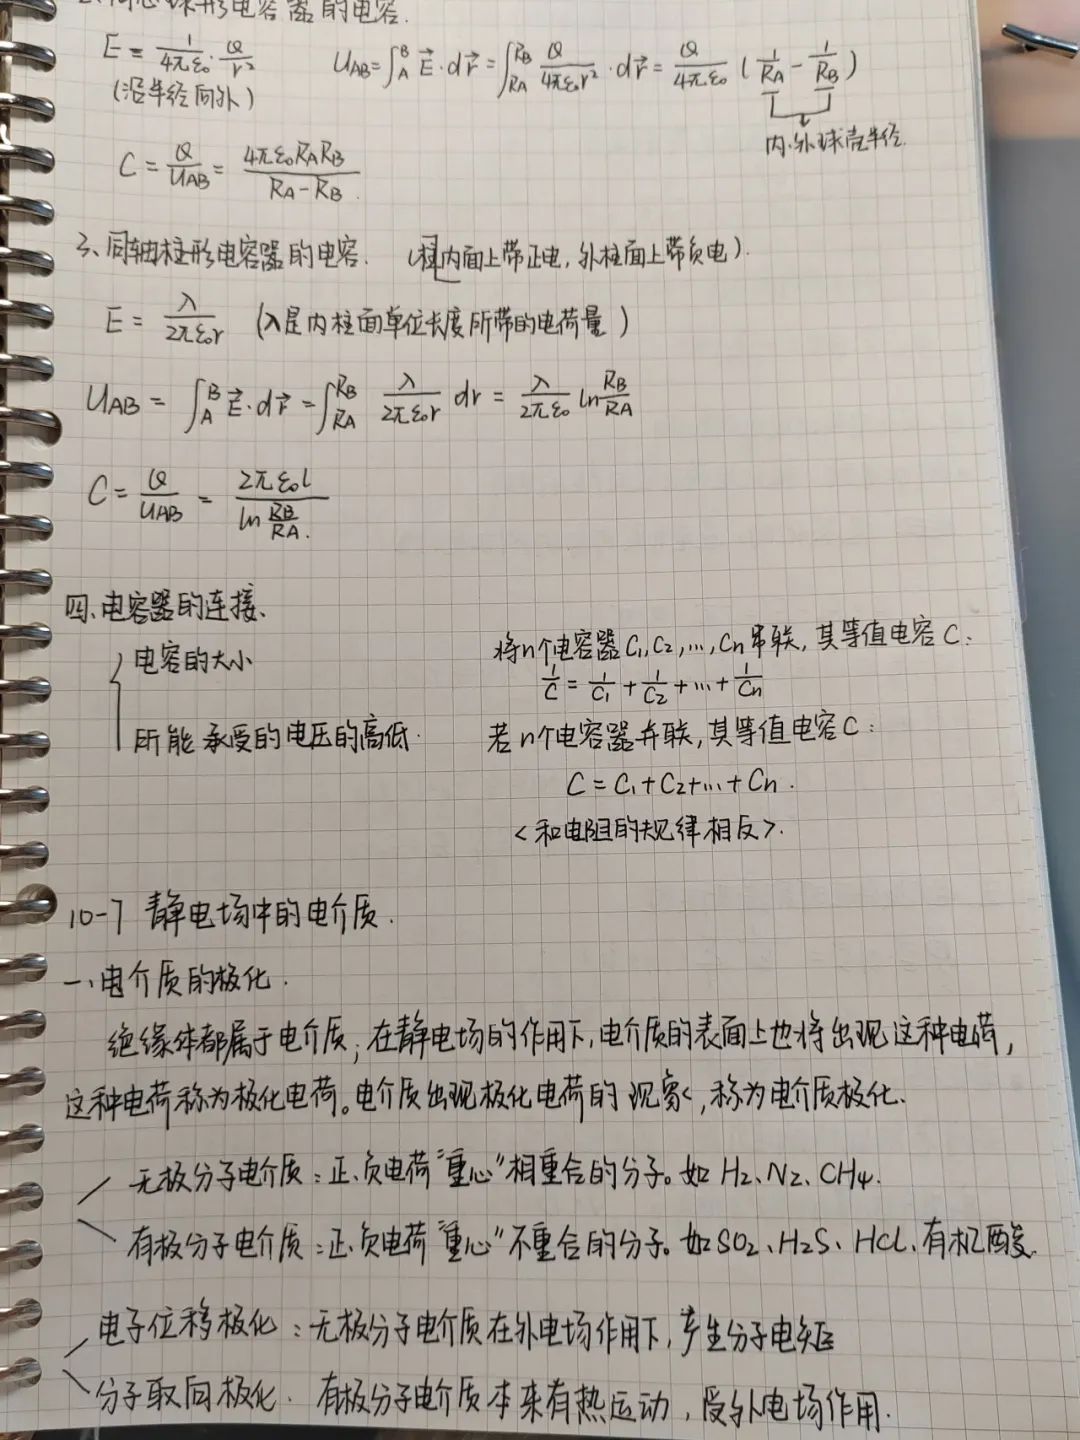 2、同心球形电容器的电容.
E = \frac{1}{4πε₀}·\frac{Q}{r²}  U_{AB} = ∫_A^B \vec{E}·d\vec{r} = ∫_{R_A}^{R_B} \frac{Q}{4πε₀r²}·d\vec{r} = \frac{Q}{4πε₀}(\frac{1}{R_A} - \frac{1}{R_B})
(沿半径向外)
内.外球壳半径.
C = \frac{Q}{U_{AB}} = \frac{4πε₀R_AR_B}{R_A-R_B}.
3、同轴柱形电容器的电容. (柱内面上带正电,外柱面上带负电).
E = \frac{λ}{2πε₀r} (λ是内柱面单位长度所带的电荷量)
U_{AB} = ∫_A^B \vec{E}·d\vec{r} = ∫_{R_A}^{R_B} \frac{λ}{2πε₀r} dr = \frac{λ}{2πε₀} ln\frac{R_B}{R_A}
C = \frac{Q}{U_{AB}} = \frac{2πε₀l}{ln\frac{R_B}{R_A}}.
四、电容器的连接、
电容的大小
所能承受的电压的高低.
将n个电容器C₁,C₂,…,Cn串联,其等值电容C:
\frac{1}{C} = \frac{1}{C₁} + \frac{1}{C₂} + … + \frac{1}{Cn}
若n个电容器并联,其等值电容C:
C = C₁+C₂+…+Cn.
<和电阻的规律相反>.
10-7 静电场中的电介质.
一、电介质的极化.
绝缘体都属于电介质;在静电场的作用下,电介质的表面上也将出现这种电荷,
这种电荷称为极化电荷。电介质出现极化电荷的现象,称为电介质极化.
无极分子电介质:正.负电荷"重心"相重合的分子。如H₂、N₂、CH₄.
有极分子电介质:正.负电荷"重心"不重合的分子。如SO₂、H₂S、HCl、有机酸.
电子位移极化:无极分子电介质在外电场作用下,产生分子电矩
分子取向极化. 有极分子电介质本来有热运动,受外电场作用.